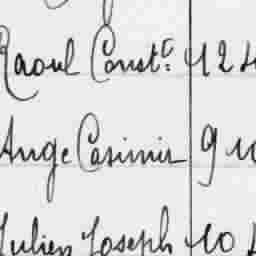 Raoul Const.t 12
Ange Casimir 9
Julien Joseph 10